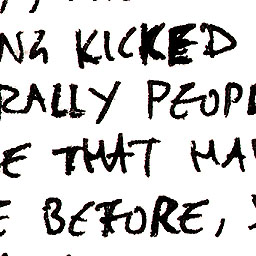 NG KICKED
RALLY PEOP
E THAT HA
E BEFORE,